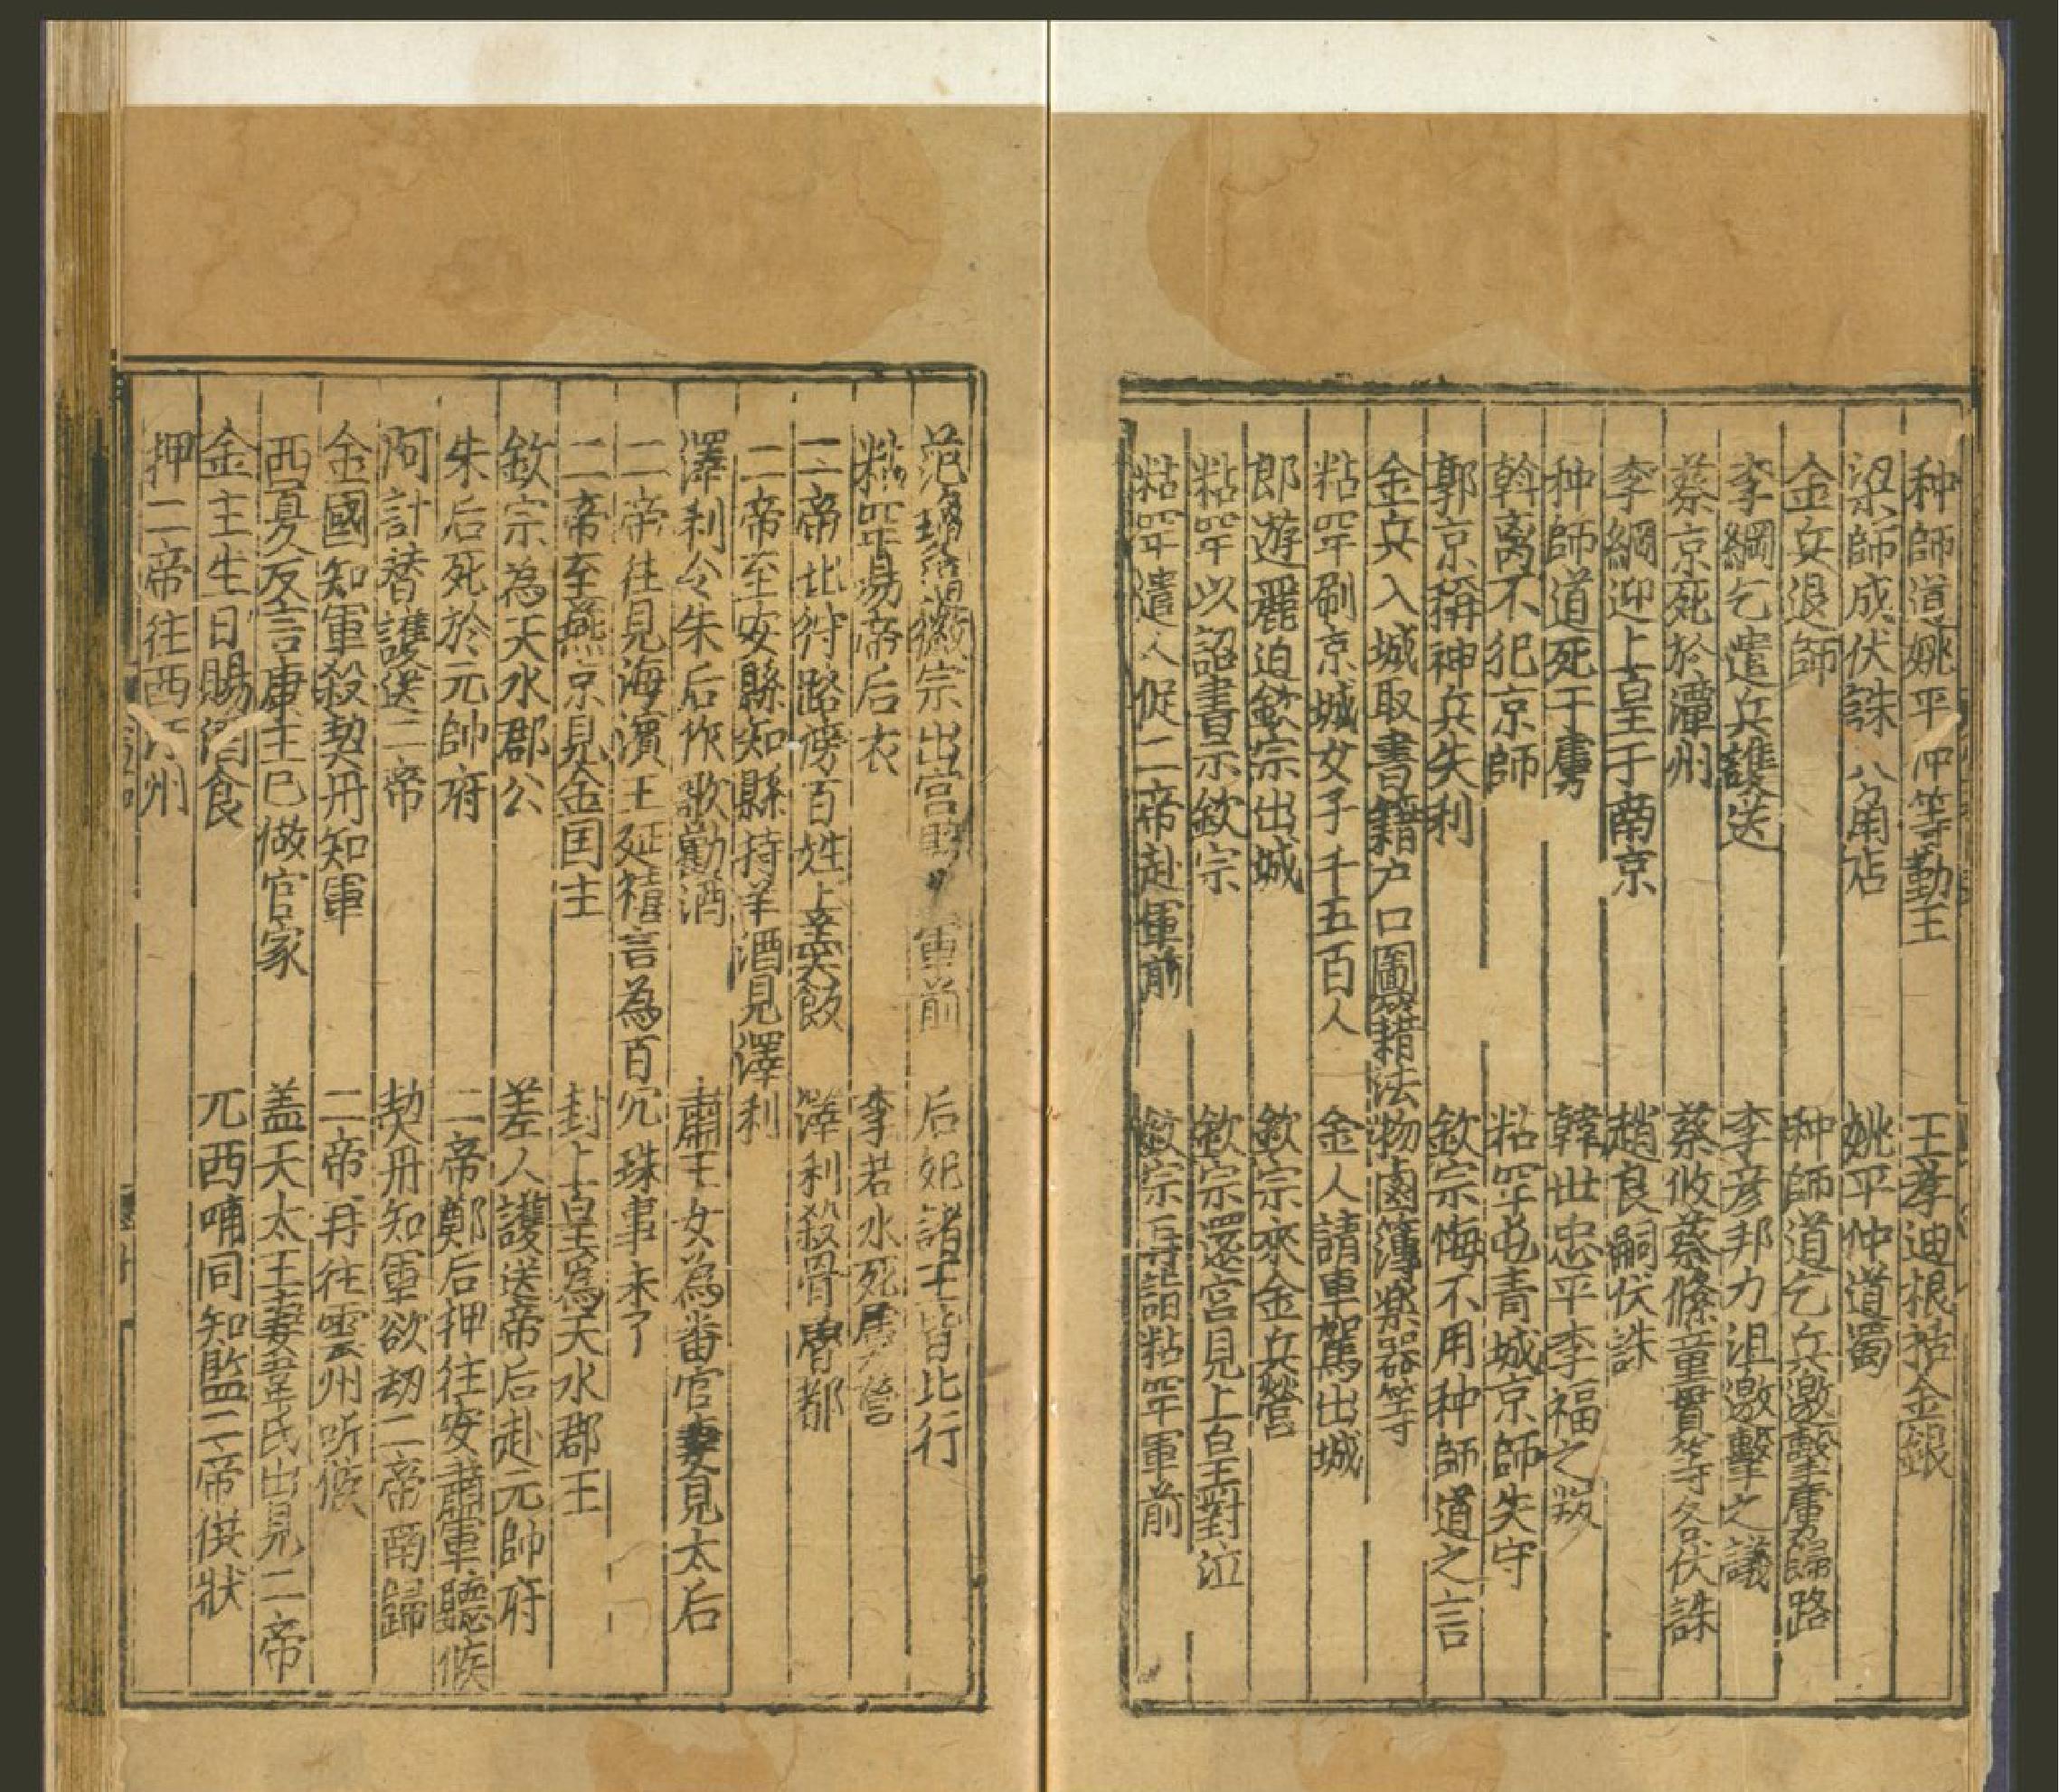 种師道姚平仲等勤王　王孝迪根括金銀
梁師成伏誅八角店　姚平仲道蜀
金兵退師　种師道乞兵激擊虜歸路
李綱乞遣兵護送　李彦邦力沮邀擊之議
蔡京死於潭州　蔡攸蔡絛童貫等各伏誅
李綱迎上皇于南京　趙良嗣伏誅
种師道死于虜　韓世忠平李福之叛
斡离不犯京師　粘罕屯青城京師失守
郭京稱神兵失利　欽宗悔不用种師道之言
金兵入城取書籍户口圖籍法物鹵簿樂器等
粘罕刷京城女子千五百人　金人請車駕出城
郎遊麗迫欽宗出城　欽宗來金兵營
粘罕以詔書示欽宗　欽宗還宮見上皇對泣
粘罕遣人促二帝赴軍前　欽宗再詣粘罕軍前
范瓊徽宗出宫軍前　后妃諸王皆北行
粘罕易帝后衣　李若水死虜營
二帝北行路傍百姓上羹飯　澤利殺骨都
二帝至安縣知縣持羊酒見澤利
澤利令朱后作歌勸酒　肅王女為畨官妻見太后
二帝往見海濵王延禧言為百穴珠事未了
二帝至燕京見金囯主　封上皇為天水郡王
欽宗為天水郡公　差人護送帝后赴元帥府
朱后死於元帥府　二帝鄭后押往安肅軍聽候
阿計替護送二帝　契丹知軍欲刼二帝南歸
金國知軍殺契丹知軍　二帝再往雲州听候
西夏反言康王已做官家　盖天太王妻韋氏出見二帝
金主生日賜酒食　兀西哺同知監二帝供狀
押二帝往西州